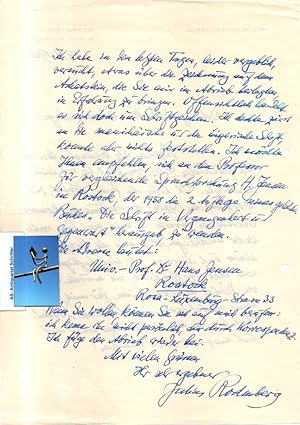 Ich habe in den letzten Tagen, leider vergeblich,
versucht, etwas über die Zeichnung auf dem
die Sie mir in Abrieb beilegten,
in Erfahrung zu bringen. Offensichtlich handelt
es sich doch um Schriftzeichen. Ich dachte zuerst
an die manichäische und die uigurische Schrift
konnte aber nichts feststellen. Ich möchte
Ihnen empfehlen, sich an den Professor
für vergleichende Sprachforschung H. Jensen
in Rostock, der 1958 die 2. Auflage seines gelehrten
Buches: Die Schrift in Vergangenheit und
Gegenwart herausgab, zu wenden.
Die Adresse lautet:
Univ.-Prof. Dr. Hans Jensen
Rostock
Rosa-Luxemburg-Strasse 33
Wenn Sie wollen, können Sie sich auf mich berufen:
ich kenne ihn nicht persönlich, nur durch Korrespondenz.
Ich füge den Abrieb wieder bei.
Mit vielen Grüssen
Ihr sehr ergebener
Julius Rodenberg
Antiquariat Schröter